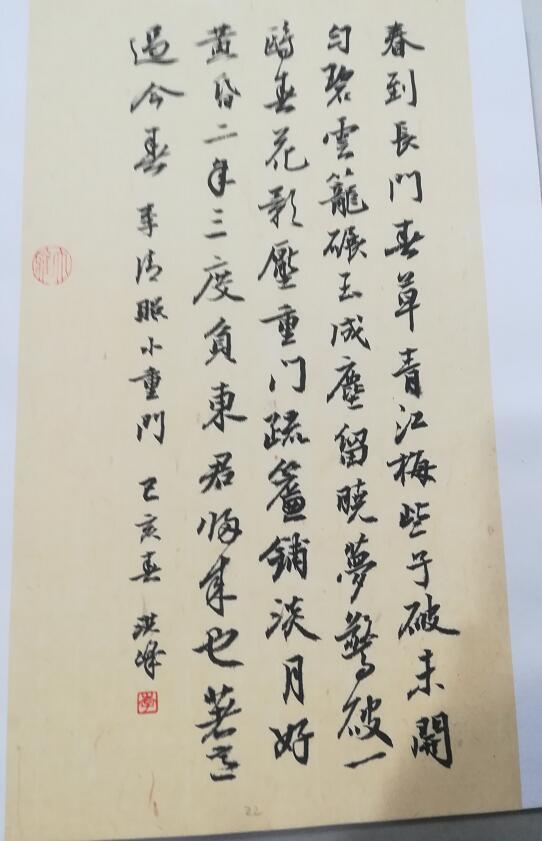 春到長門春草青江梅些子破未開
勻碧雲籠碾玉成塵留曉夢驚破一
甌春花影壓重門疏簾鋪淡月好
黃昏二年三度負東君歸來也著意
過今春 李清照小重門 己亥春 洪峰
22